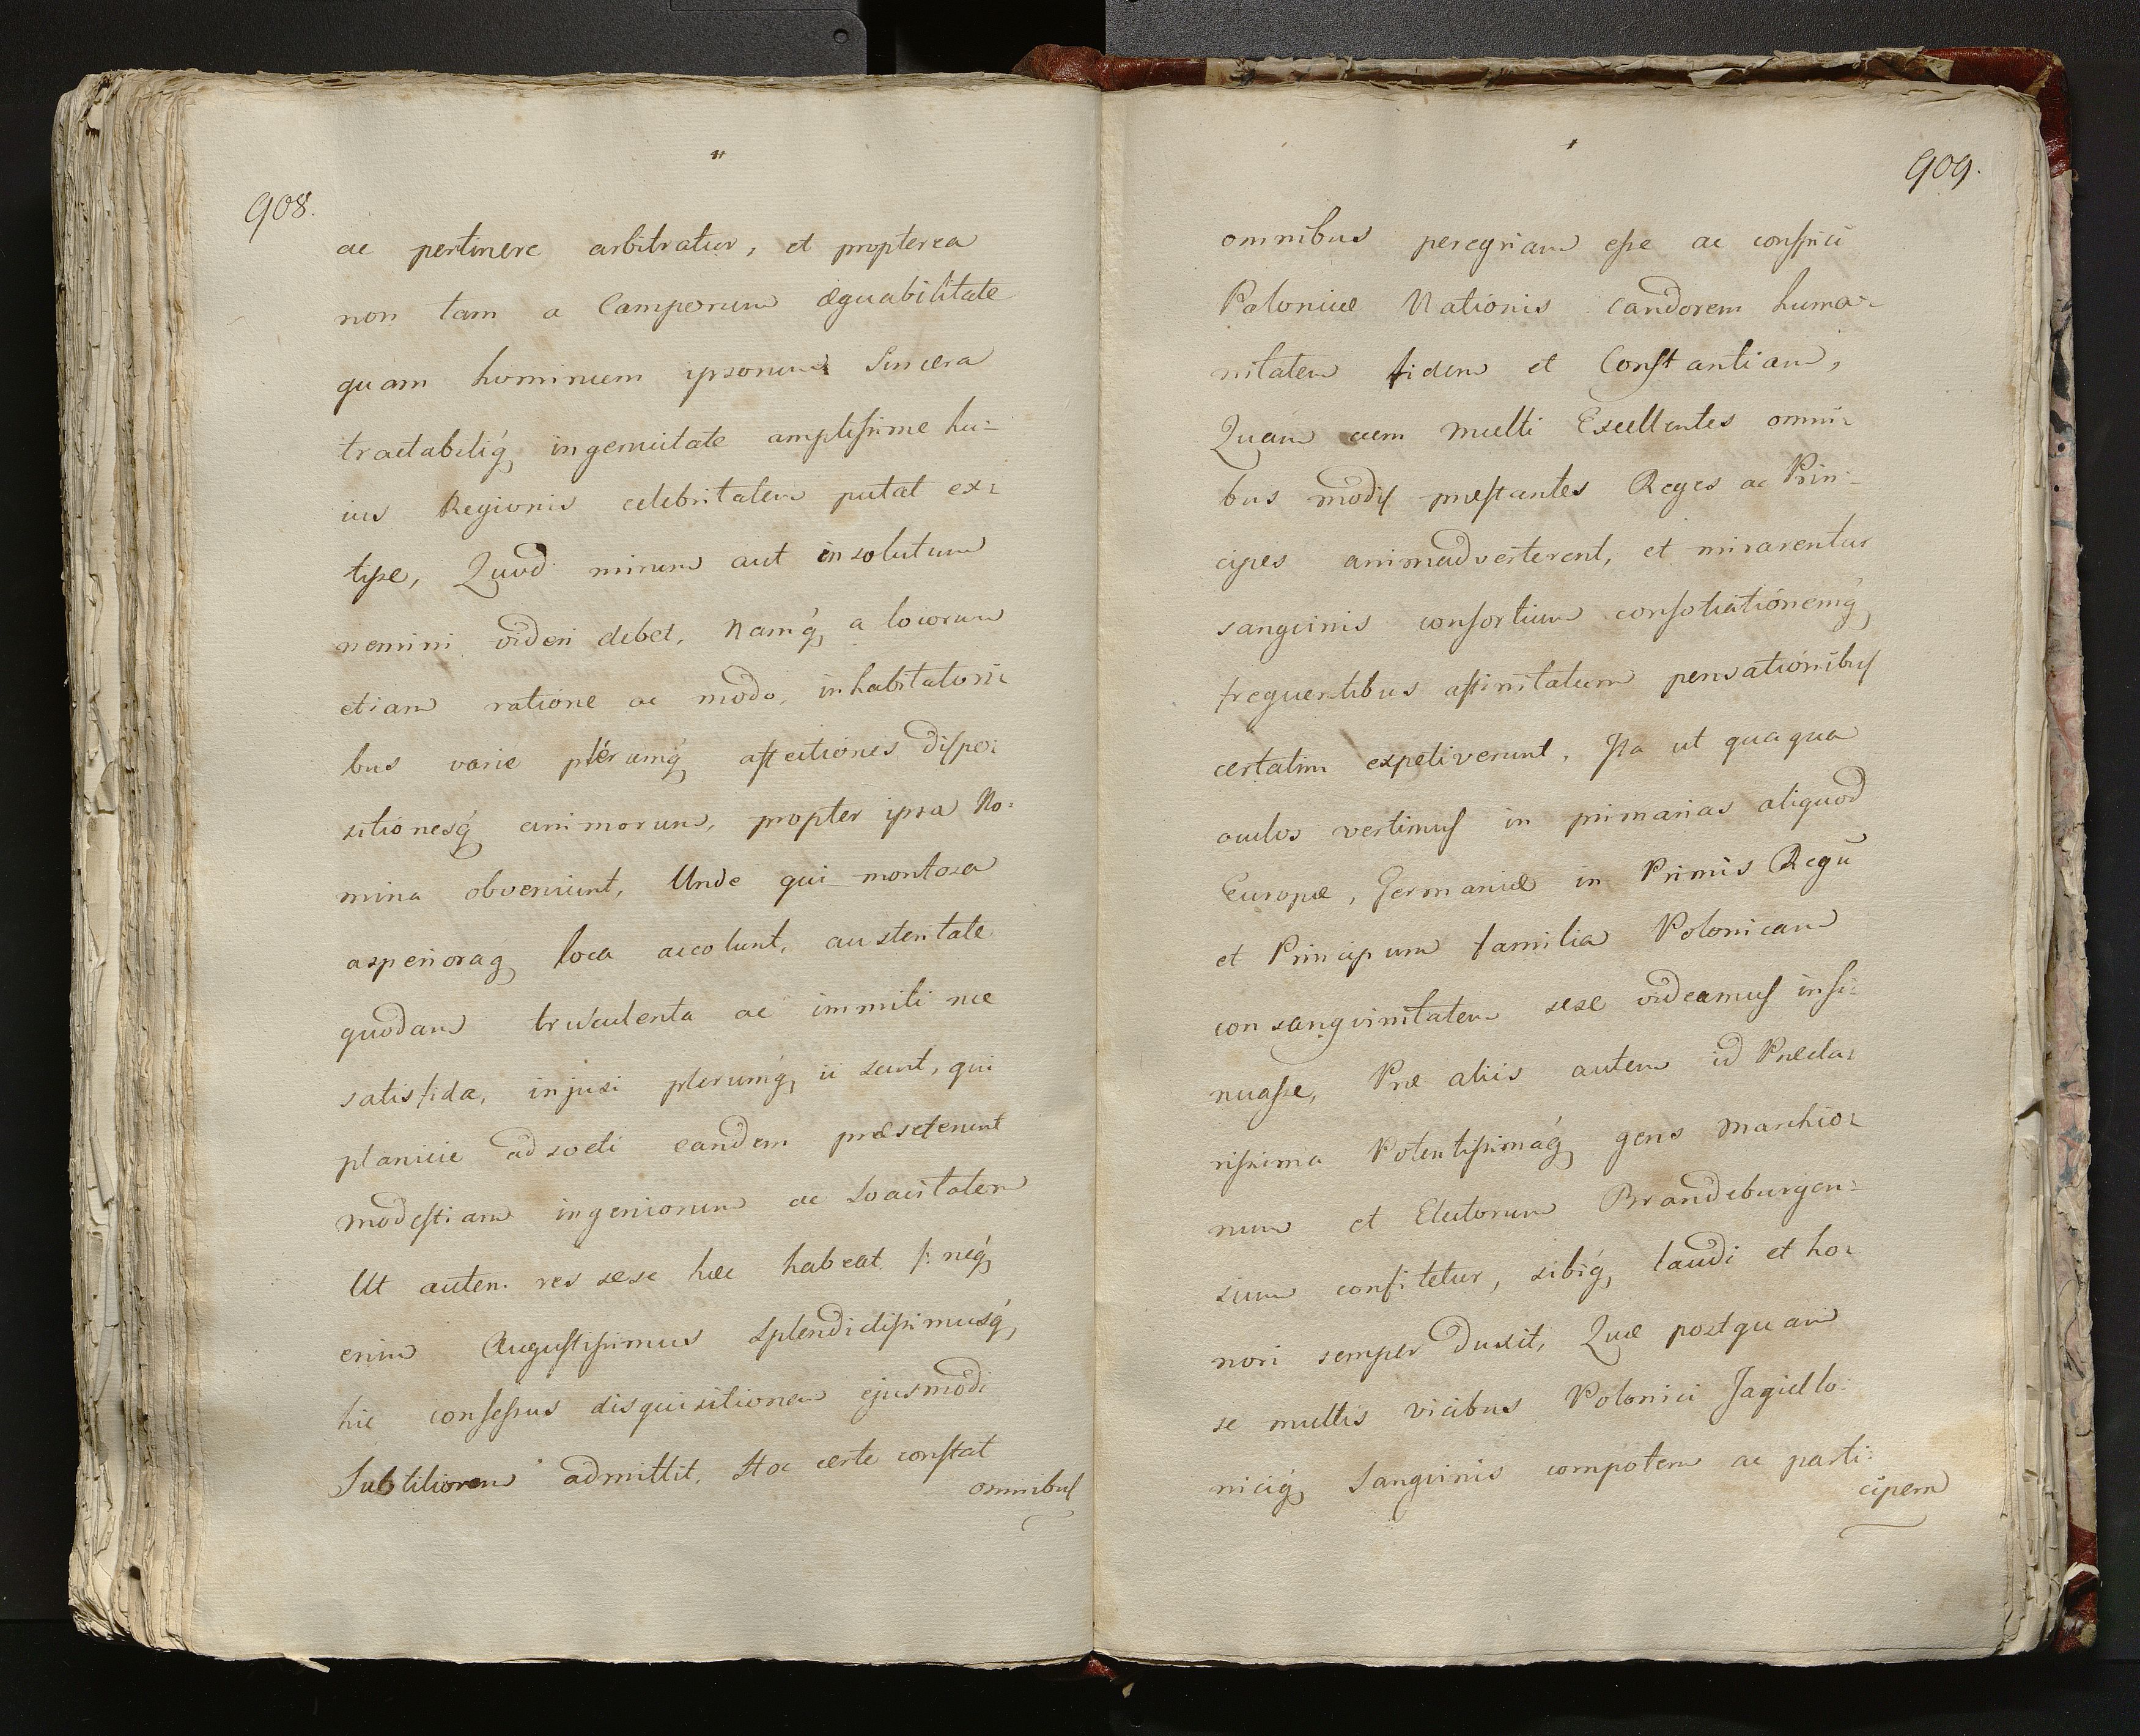 908.
ac pertinere arbitratur, et propterea
non tam a Camporum æquabilitate
quam hominum ipsorum Sincera
tractabiliq́ ingenuitate amplissime hu=
ius Regionis celebritatem putat ex=
tisse, Quod mirum aut insolutum
nemini videri debet. Namq́ a locorum
etiam ratione ac modo, inhabitatori=
bus varie plérumq́ affectiones dispo=
sitionesq́ animorum, propter ipsa No=
mina obveniunt, Unde qui montosa
asperioraq loca accolunt, austeritate
quadam truculenta ac immiti nce
satisfida, injusi plerumq́ ii sunt, qui
planicie adsveti eandem præseferunt
modestiam ingeniorum ac Svavitatem
Ut autem res sese hæc habeat /: neq́
enim Augustissimus Splendidissimusq́
hic consessus disquisitionem ejusmodi
Subtiliorem admittit. Hoc certe constat
omnibus
909.
omnibus peregriam esse ac conspici
Poloniæ Nationis Candorem huma=
nitatem fidem et Constantiam,
Quam cum multi Excellentes omni=
bus modis præstantes Reges ac Prin=
cipes animadverterent, et mirarentur
sangvinis consortium consotiationemq́
frequentibus affinitatum pensationibus
certatim expetiverunt. Ita ut quaqua
oculos vertimus in primarias aliquod
Europæ, Germaniæ in Primis Regū
et Principum familia Polonicam
consangvinitatem sese videamus insi=
nuasse, Præ aliis autem id Præcla=
rissima Potentissimaq́ gens Marchio=
num et Electorum Brandeburgen=
sium confitetur, sibiq́, laudi et ho=
nori semper Duxit, Quæ postquam
se multis vicibus Polonici Jagiello=
niciq́ Sangvinis compotem ac parti=
cipem